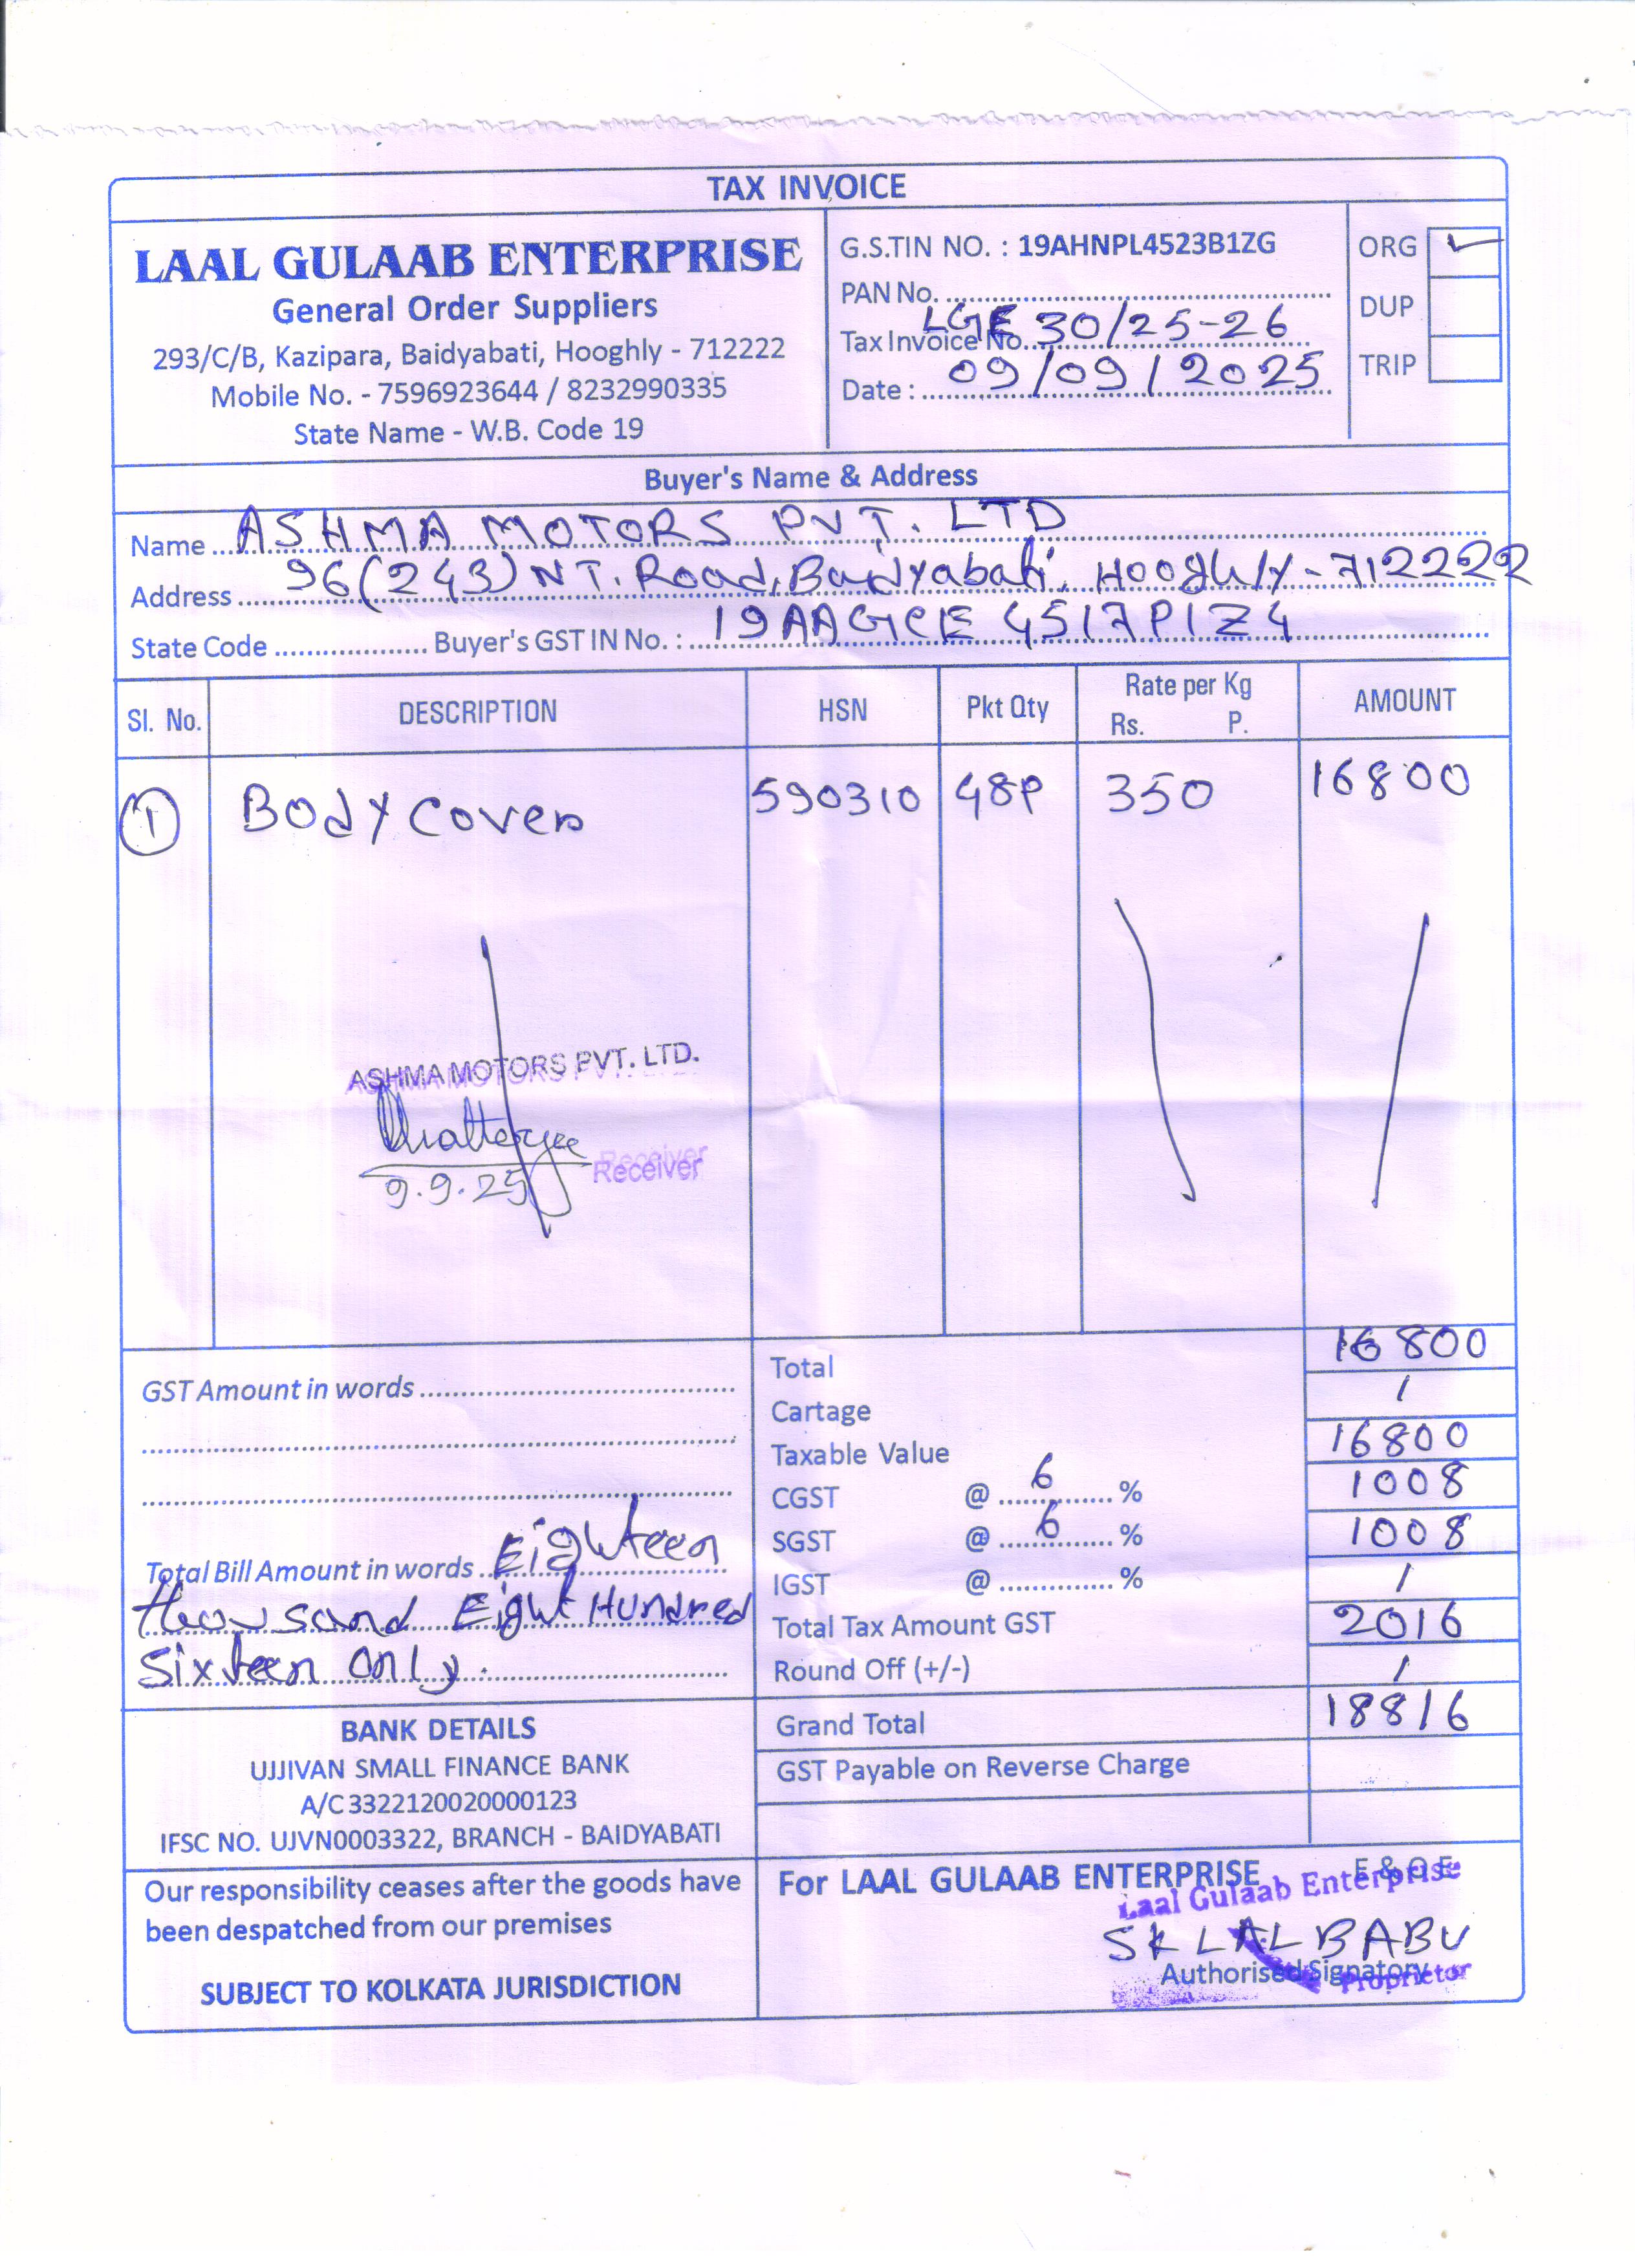 TAX INVOICE
LAAL GULAAB ENTERPRISE
General Order Suppliers
293/C/B, Kazipara, Baidyabati, Hooghly - 712222
Mobile No. - 7596923644 / 8232990335
State Name - W.B. Code 19
G.S.TIN NO. : 19AHNPL4523B1ZG
PAN No.
Tax Invoice No. LGE 30/25-26
Date : 09/09/2025
ORG ✓
DUP
TRIP
Buyer's Name & Address
Name ASHMA MOTORS PVT. LTD
Address 96(243) N T. Road, Baidyabati, Hooghly-712222
State Code Buyer's GST IN No. : 19AAGCE4517P1Z4
Sl. No. DESCRIPTION HSN Pkt Qty Rate per Kg Rs. P. AMOUNT
1 Body Cover 590310 48P 350 16800
ASHMA MOTORS PVT. LTD.
Chatterjee
9.9.25
Receiver
Total 16800
Cartage /
Taxable Value 16800
CGST @ 6 % 1008
SGST @ 6 % 1008
IGST @ % /
Total Tax Amount GST 2016
Round Off (+/-) /
Grand Total 18816
GST Payable on Reverse Charge
GST Amount in words
Total Bill Amount in words Eighteen
thousand Eight Hundred
Sixteen only.
BANK DETAILS
UJJIVAN SMALL FINANCE BANK
A/C 3322120020000123
IFSC NO. UJVN0003322, BRANCH - BAIDYABATI
Our responsibility ceases after the goods have
been despatched from our premises
SUBJECT TO KOLKATA JURISDICTION
For LAAL GULAAB ENTERPRISE E & O E
Laal Gulaab Enterprise
SK LAL BABU
Authorised Signatory
Proprietor